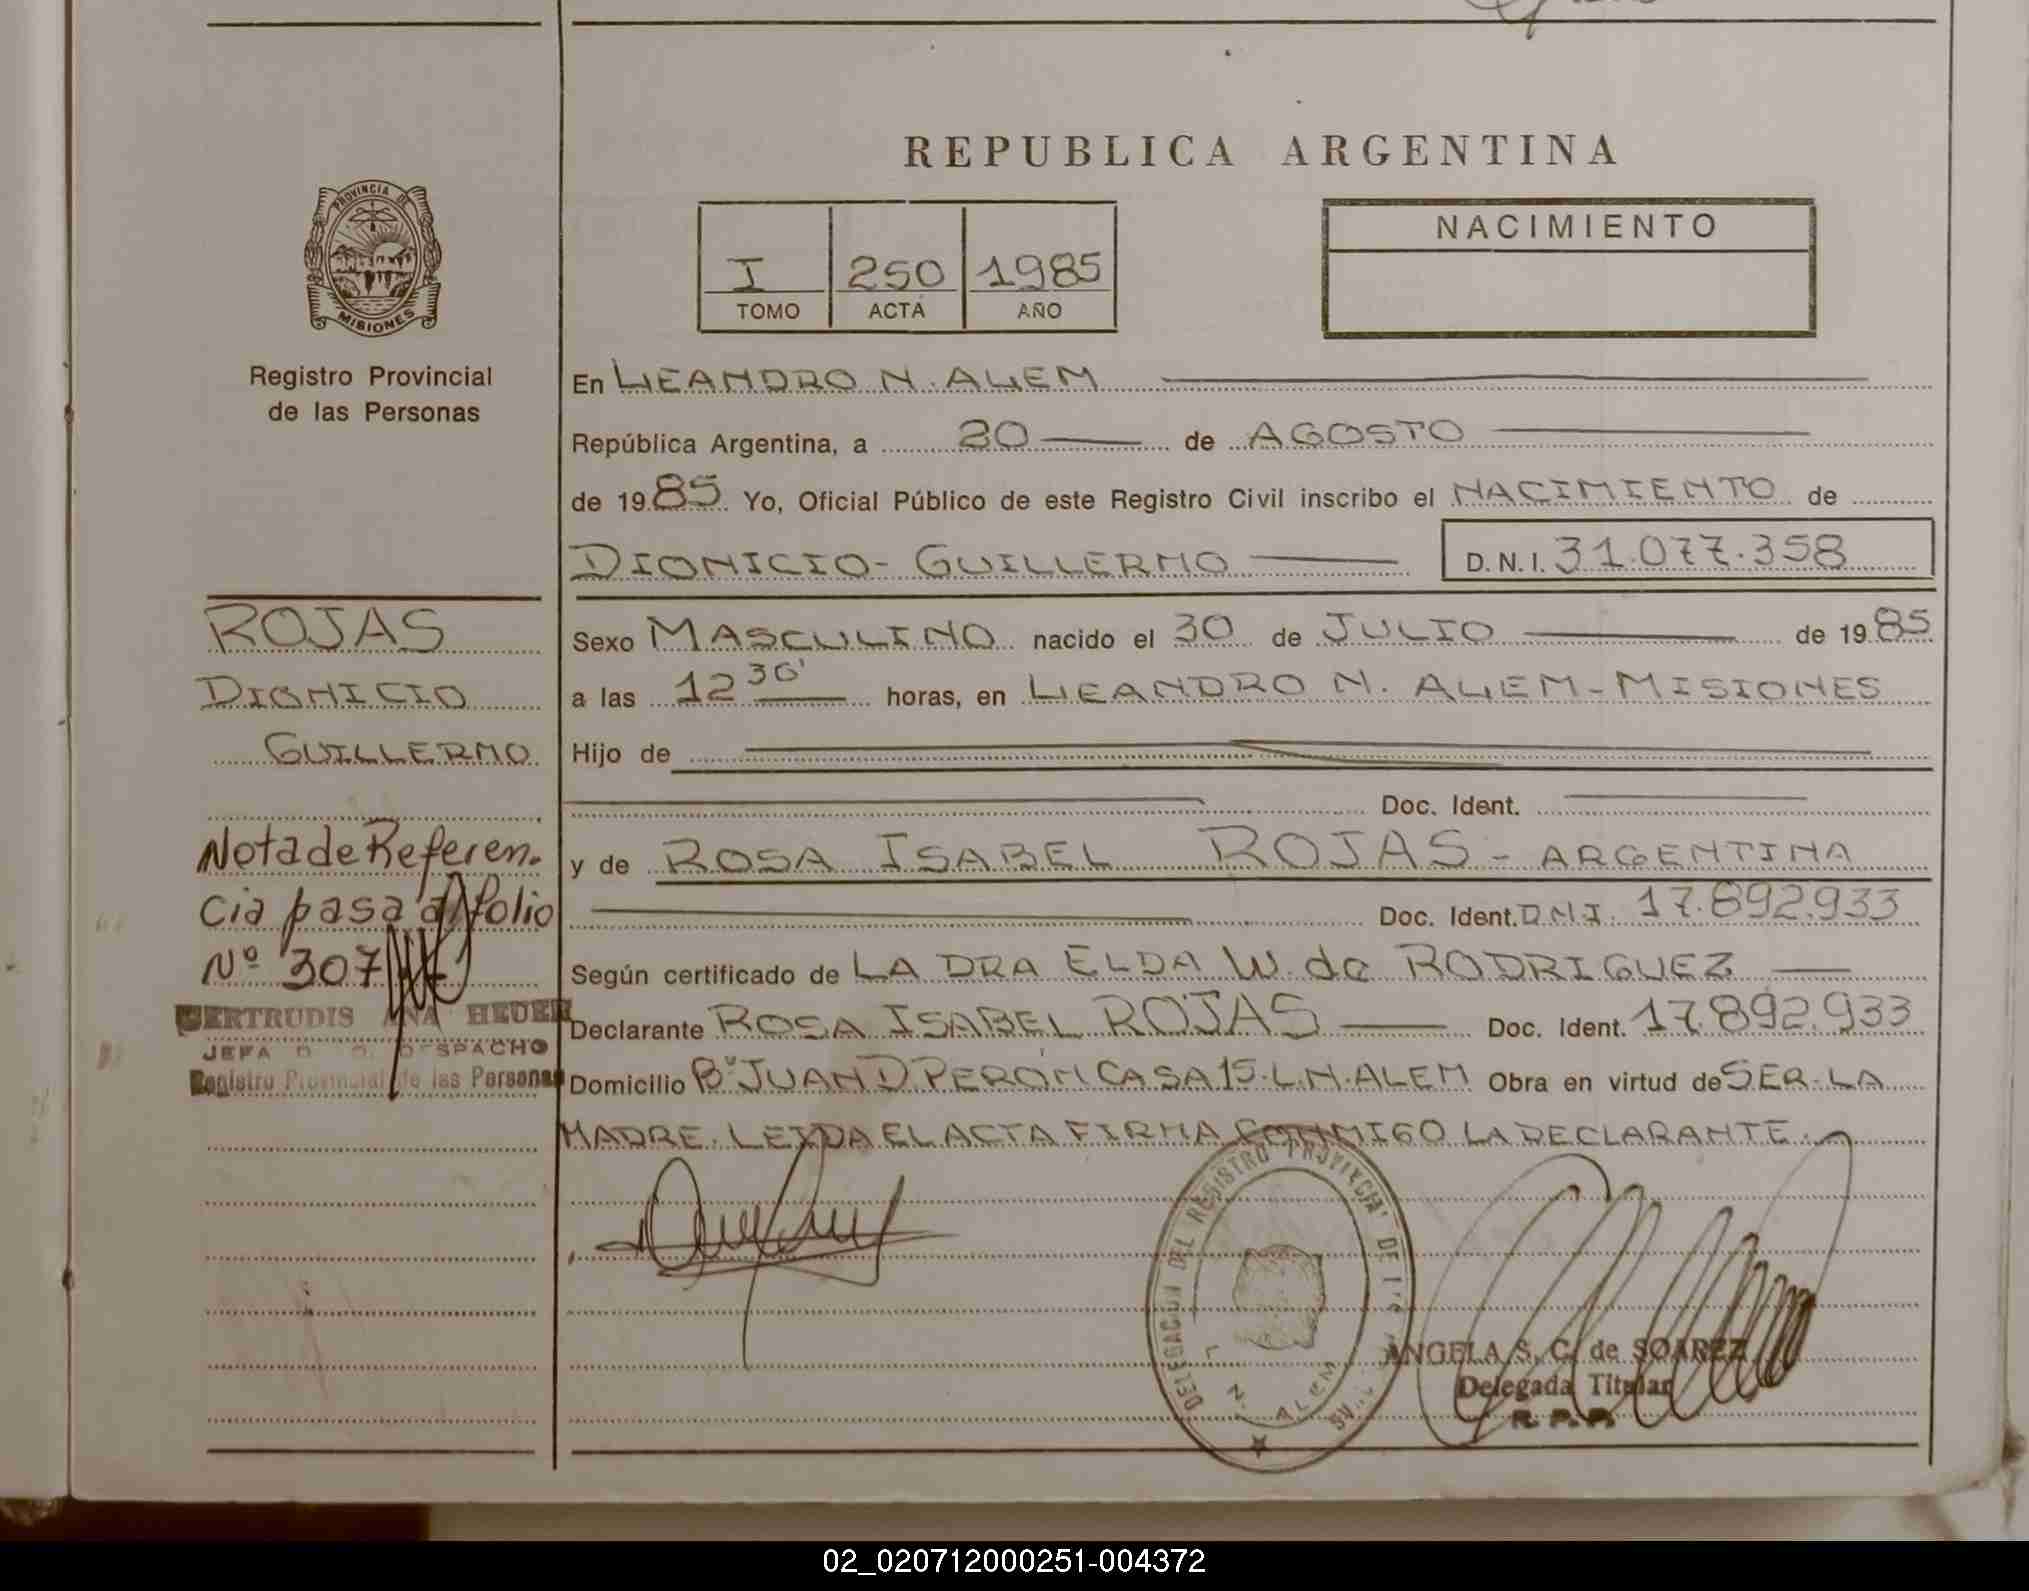 REPUBLICA ARGENTINA
PROVINCIA DE
MISIONES
Registro Provincial
de las Personas
I 250 1985
TOMO ACTA AÑO
NACIMIENTO
En LEANDRO N. ALEM
República Argentina, a 20 de AGOSTO
de 1985 Yo, Oficial Público de este Registro Civil inscribo el NACIMIENTO de
DIONICIO- GUILLERMO D.N.I. 31.077.358
ROJAS
DIONICIO
GUILLERMO
Sexo MASCULINO nacido el 30 de JULIO de 1985
a las 12 30' horas, en LEANDRO N. ALEM-MISIONES
Hijo de
Doc. Ident.
y de ROSA ISABEL ROJAS - ARGENTINA
Doc. Ident. D.N.I. 17.892.933
Nota de Referen.
cia pasa al folio
Nº 307
GERTRUDIS ANA HEDER
JEFA D DESPACHO
Registro Provincial de las Personas
Según certificado de LA DRA ELDA W. de RODRIGUEZ
Declarante ROSA ISABEL ROJAS Doc. Ident. 17.892.933
Domicilio Bº JUAN D PERON CASA 15-L.N.ALEM Obra en virtud de SER LA
MADRE. LEIDA EL ACTA FIRMA CONMIGO LA DECLARANTE.
DELEGACION DEL REGISTRO PROVINCIAL DE LAS
L. N. ALEM
ANGELA S. C. de SOAREZ
Delegada Titular
R. P. P.
02_020712000251-004372